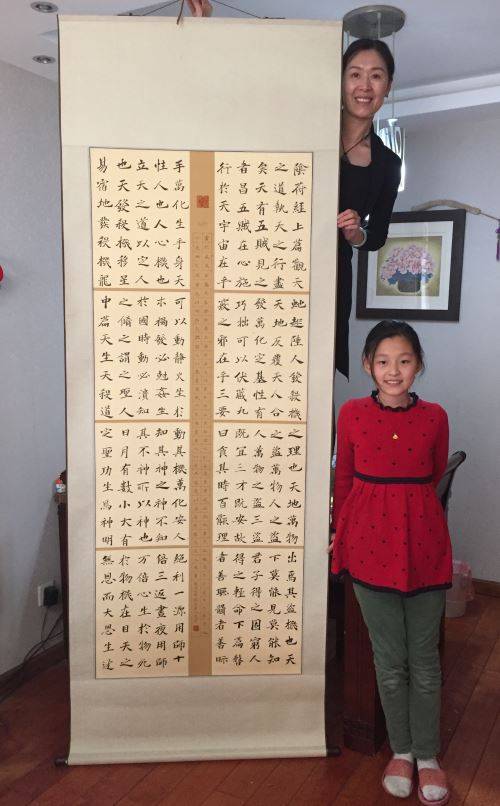 陰符經上篇觀天
之道執天之行盡
矣天有五賊見之
者昌五賊在心施
行於天宇宙在乎
手萬化生乎身天
性人也人心機也
立天之道以定人
也天發殺機移星
易宿地發殺機龍
虵起陸人發殺機
天地反覆天人合
發萬化定基性有
巧拙可以伏藏九
竅之邪在乎三要
可以動靜火生於
木禍發必尅姦生
於國時動必潰知
之脩之謂之聖人
中篇天生天殺道
之理也天地萬物
之盜萬物人之盜
人萬物之盜三盜
既宜三才既安故
曰食其時百骸理
動其機萬化安人
知其神之神不知
其不神所以神也
日月有數小大有
定聖功生焉神明
出焉其盜機也天
下莫能見莫能知
君子得之固窮人
得之輕命下篇瞽
者善聽聾者善眎
絕利一源用師十
倍三返晝夜用師
萬倍心生於物死
於物機在目天之
無恩而大恩生迅